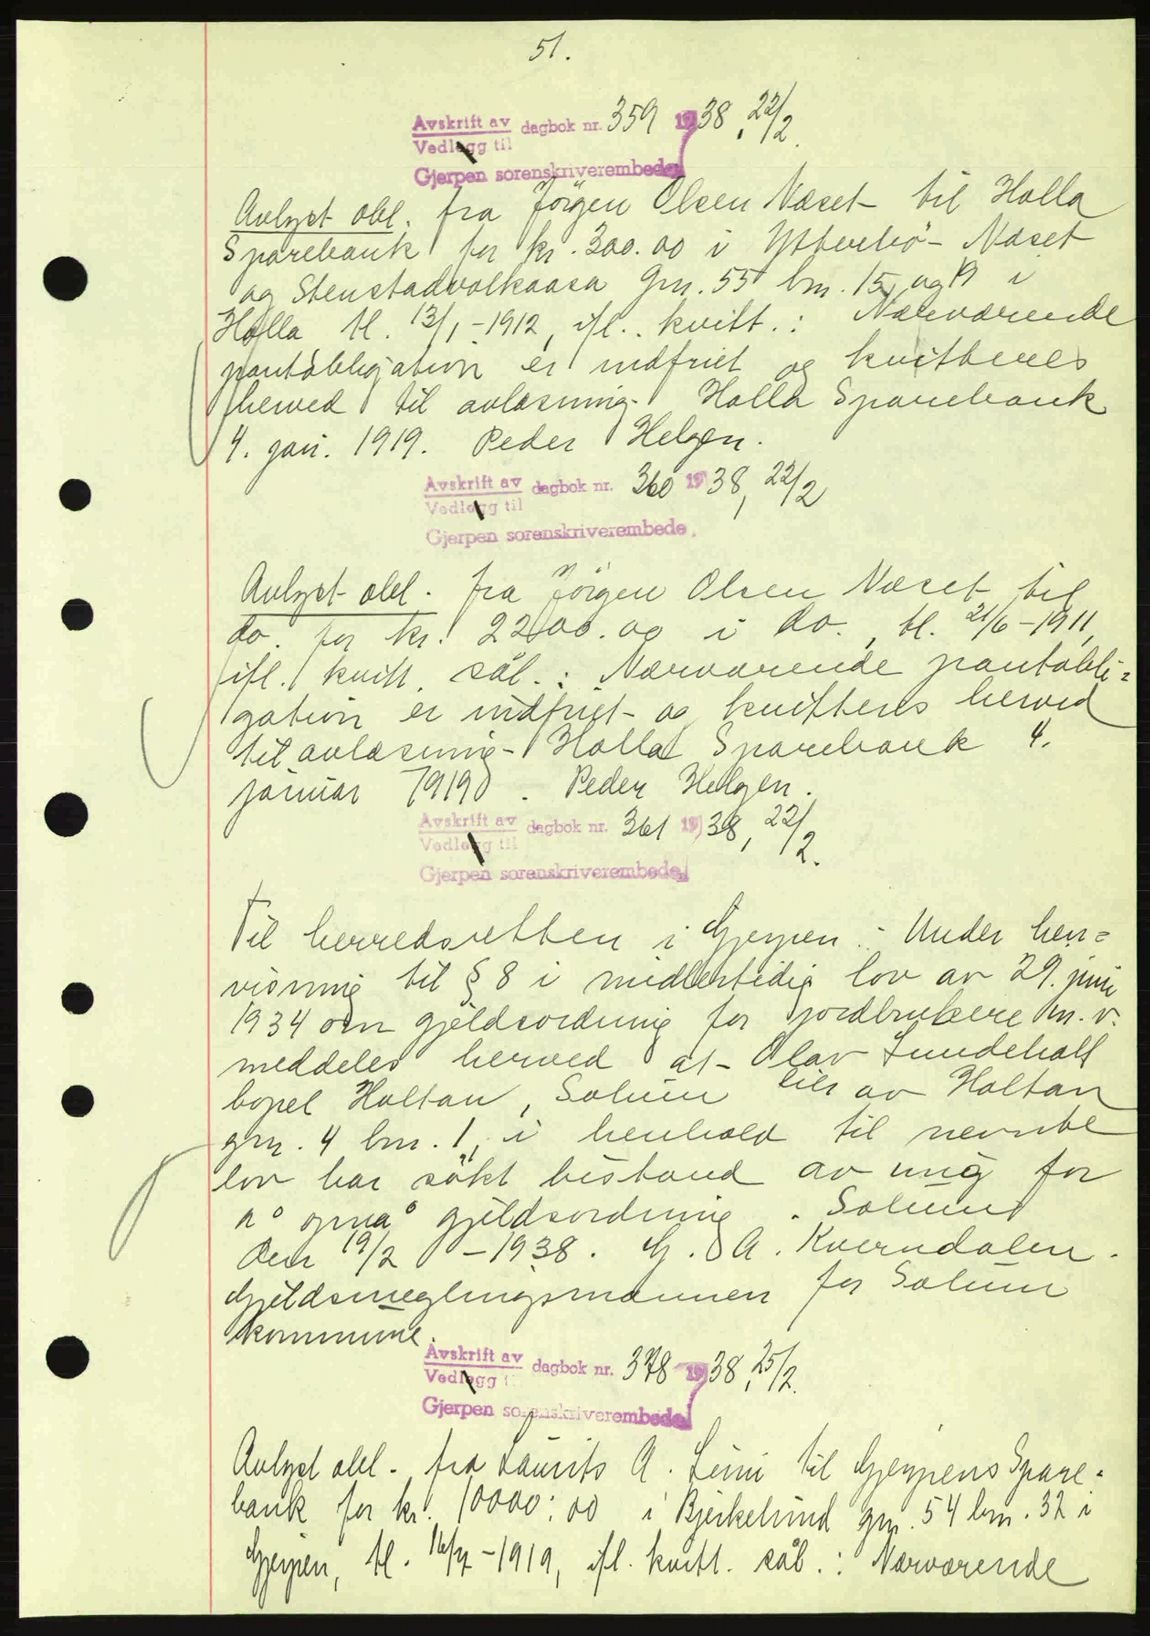 51.
Avskrift av dagbok nr. 359 1938, 22/2.
Vedlegg til
Gjerpen sorenskriverembede
Avlyst obl. fra Jörgen Olsen Næset til Holla
Sparebank for kr. 300.00 i Ytterbö- Næset
og Stenstadvolkaasa Gnr. 55 bnr. 15 og 19 i
Holla tl. 13/1-1912, ifl. kvitt.: Nærværende
pantobligation er indfriet og kvitteres
herved til avlæsning. Holla Sparebank
4. jan. 1919. Peder Helgen.
Avskrift av dagbok nr. 360 1938, 22/2
Vedlegg til
Gjerpen sorenskriverembede.
Avlyst obl. fra Jörgen Olsen Næset til
do. for kr. 2200.00 i do., tl. 21/6-1911,
ifl. kvitt. sål.: Nærværende pantobli=
gation er indfriet og kvitteres herved
til avlæsning - Holla Sparebank 4.
januar 1919. Peder Helgen.
Avskrift av dagbok nr. 361 1938, 22/2.
Vedlegg til
Gjerpen sorenskriverembede
Til herredsretten i Gjerpen.- Under hen=
visning til § 8 i midlertidig lov av 29. juni
1934 om gjeldsordning for jordbrukere m.v.
meddeles herved at Olav Lundehall
bopel Holtan, Solum eier av Holtan
gnr. 4 bnr. 1, i henhold til nevnte
lov har sökt bistand av mig for
å opnå gjeldsordning. Solum
den 19/2 -1938. G. A. Kverndalen.
Gjeldsmeglingsmannen for Solum
kommune.
Avskrift av dagbok nr. 378 1938, 25/2.
Vedlegg t
Gjerpen sorenskriverembede
Avlyst obl. fra Laurits A. Lini til Gjerpens Spare=
bank for kr. 10000:00 i Bjerkelund gnr. 54 bnr. 32 i
Gjerpen, tl. 16/7-1919, ifl. kvitt. sål.: Nærværende